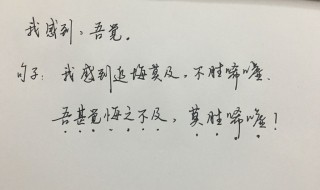 我感到：吾觉。
句子：我感到追悔莫及，不胜唏嘘.
吾甚觉悔之不及，莫胜唏嘘！